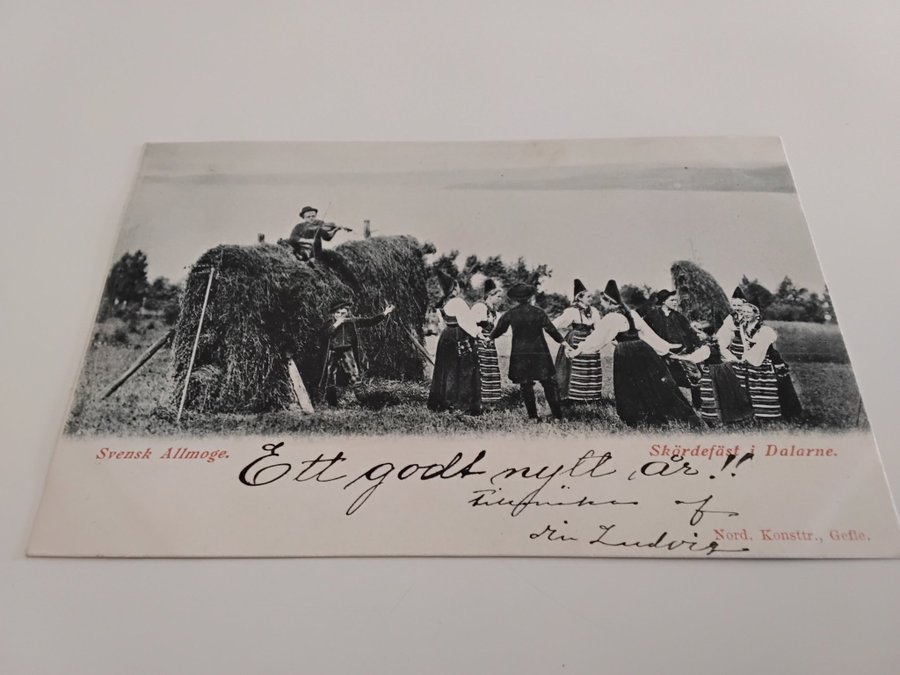 Svensk Allmoge.
Skördefäst i Dalarne.
Ett godt nytt år!!
tillönskas af
din Ludvig
Nord. Konsttr., Gefle.